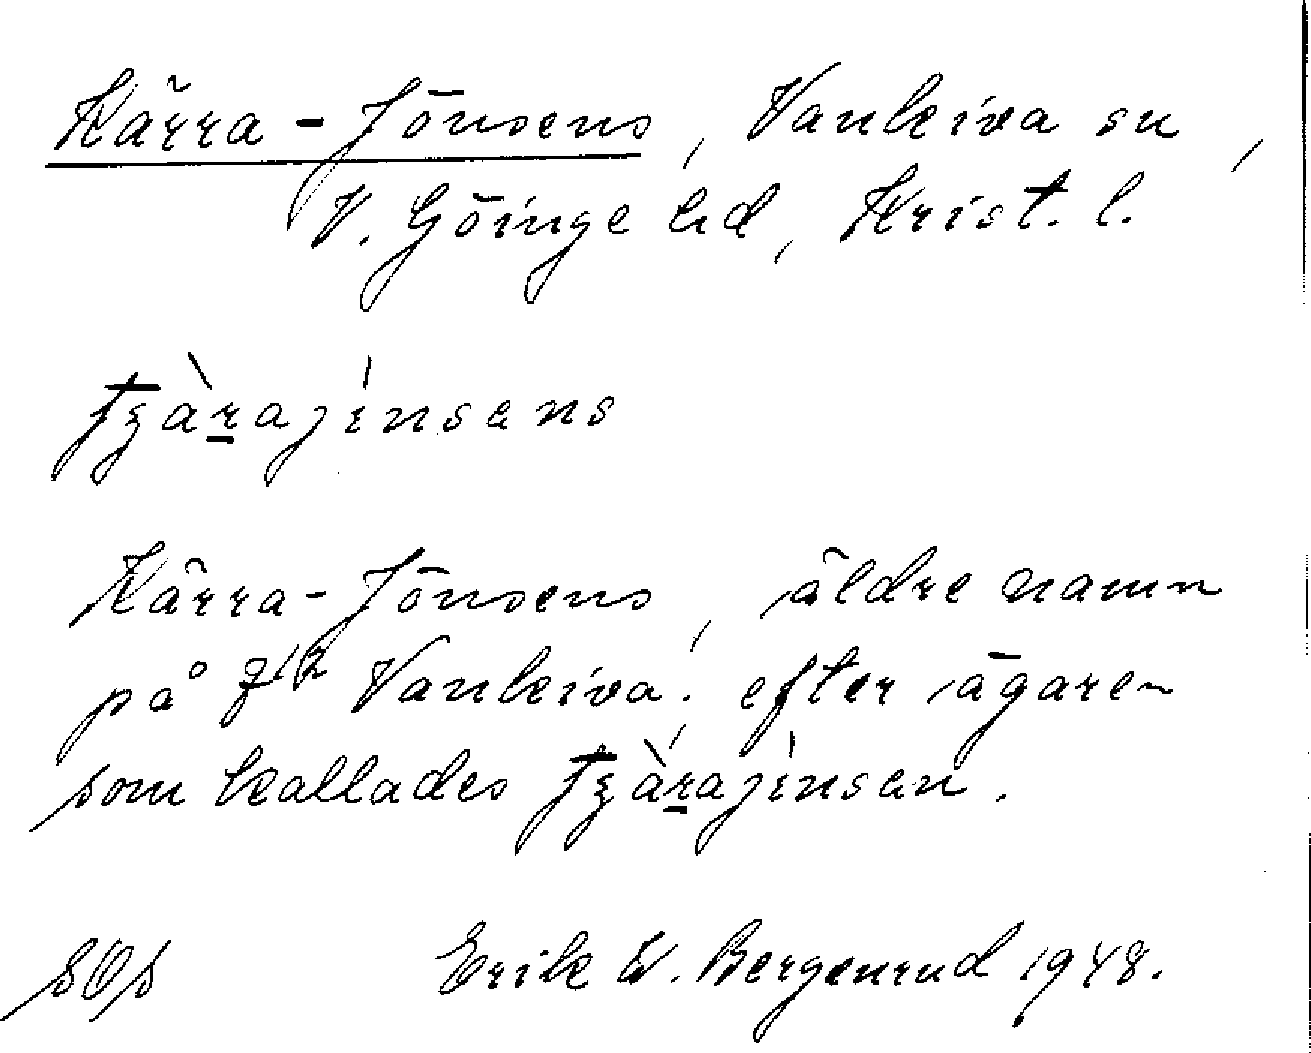 Kärra-Jönsens, Vankiva sn,
V. Göinge hd, Krist. l.
tʒàrajínsans
Kärra-Jönsens, äldre namn
på 7¹² Vankiva; efter ägaren
som kallades tʒàrajínsan.
SOS Erik W. Bergenrud 1948.